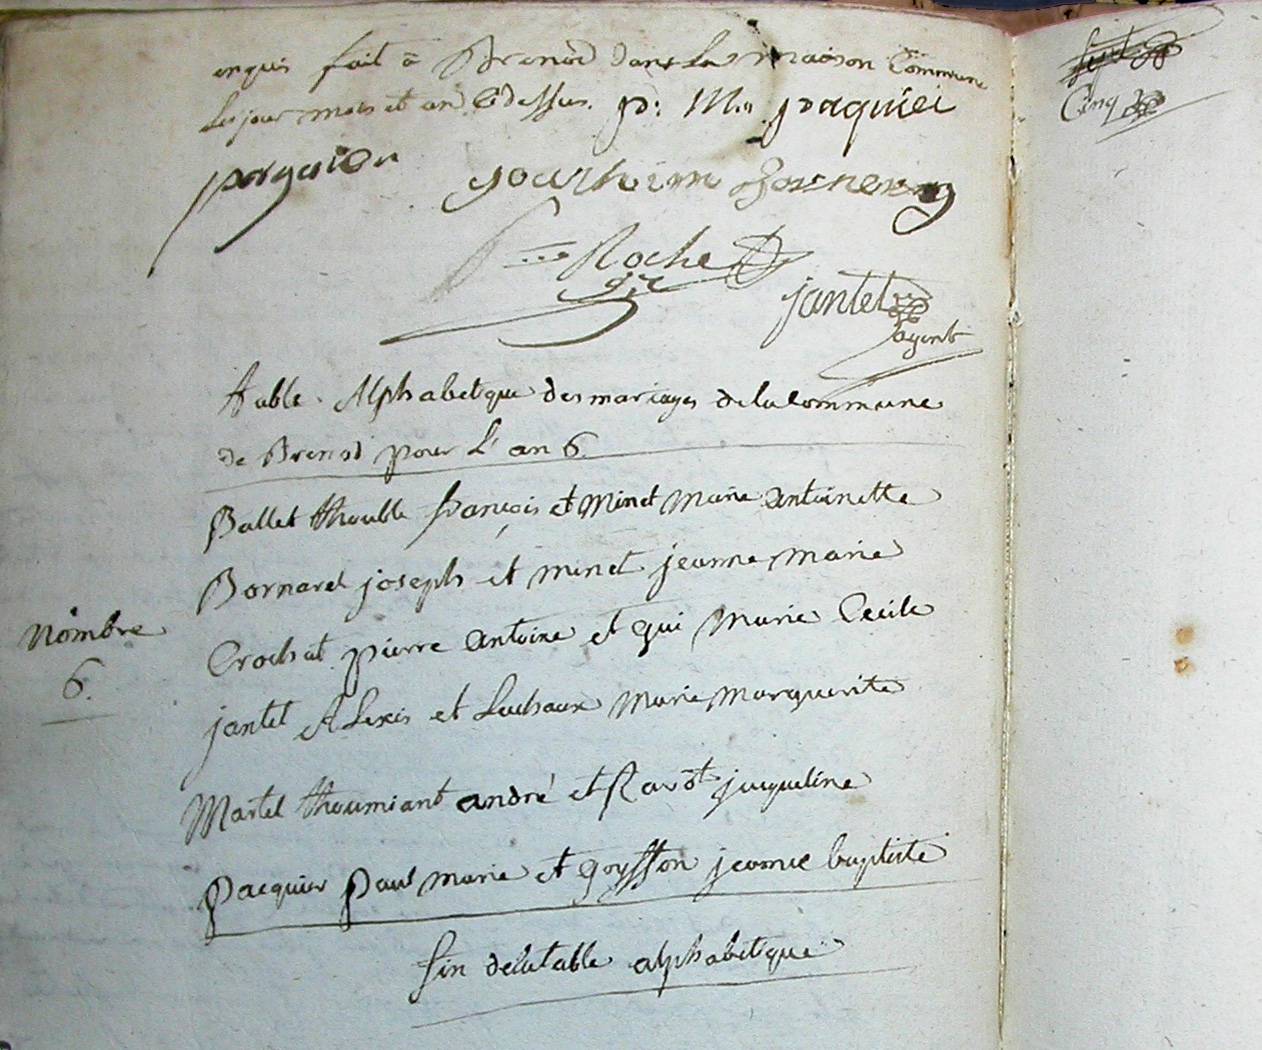 enquis fait à Brenod dans la maison Commune
les jour mois et an Cydessus. p: M.. paquiei
paquier gouthim
Roche
jantet
agent
table Alphabetque des mariages dela Commune
de Brenod pour L' an 6
Ballet thouble françois et Minet Marie antoinette
Bornarel joseph et minet jeanne marie
Crochat pierre antoine et gui Marie Cecile
jantet Alexis et Luchaux Marie Marguerite
Martel thoumiant andré et Ravot jacqueline
pacquier paul marie et goyffon jeanne baptiste
fin delatable alphabetque
Nombre
6.
Sept
Cinq